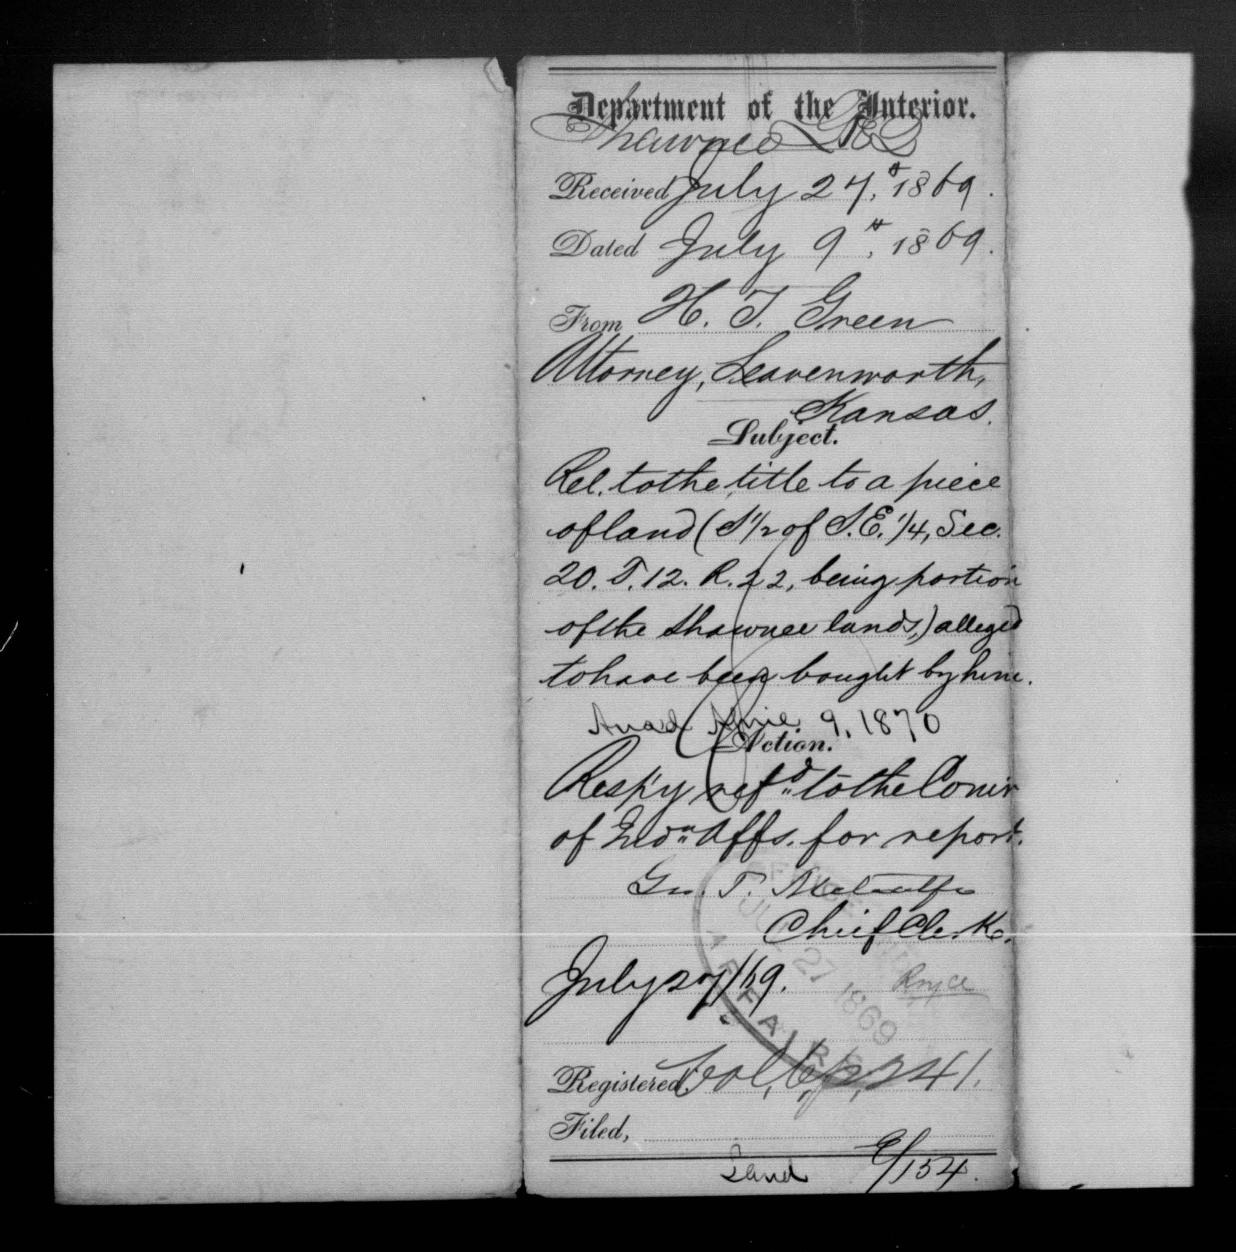 Department of the Interior.
Shawnee
Received July 27, 1869.
Dated July 9th, 1869.
From H. T. Green
Attorney, Leavenworth,
Kansas.
Subject.
Rel. to the title to a piece
of land (S 1/2 of S.E. 1/4, Sec.
20. T. 12. R. 22, being portion
of the Shawnee lands,) alleged
to have been bought by him.
9, 1870
Action.
Resp'y refd to the Comr
of Indn Affs. for report.
Geo. T. Metcalfe
Chief Clerk.
July 27/69.
Royce
OFFICE
JUL 27 1869
AFFAIRS
Registered, Vol, 6, p, 241.
Filed,
Land
G/154.